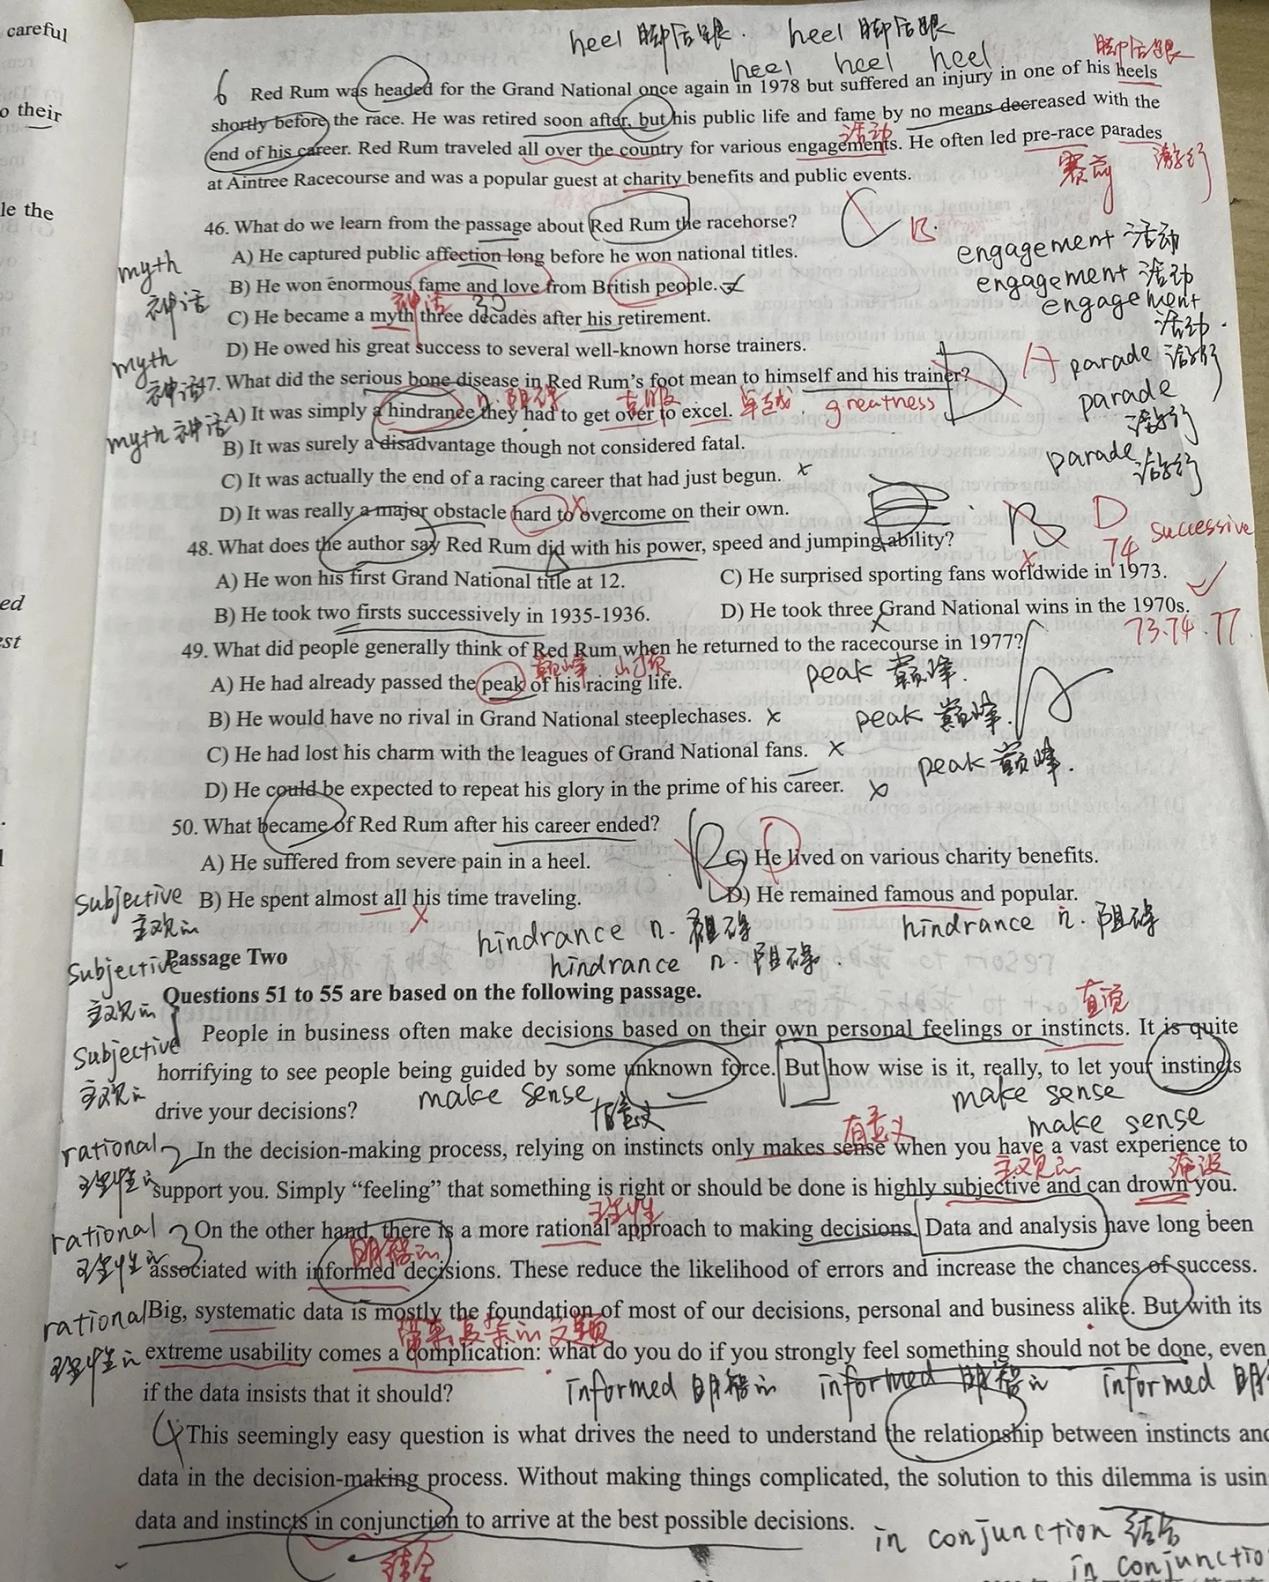 careful
o their
le the
ed
est
heel 脚后跟. heel 脚后跟
heel heel heel
脚后跟
6 Red Rum was headed for the Grand National once again in 1978 but suffered an injury in one of his heels
shortly before the race. He was retired soon after, but his public life and fame by no means decreased with the
活动
end of his career. Red Rum traveled all over the country for various engagements. He often led pre-race parades
赛前 游行
at Aintree Racecourse and was a popular guest at charity benefits and public events.
46. What do we learn from the passage about Red Rum the racehorse?
C B.
A) He captured public affection long before he won national titles.
engagement 活动
myth
B) He won enormous fame and love from British people.
engagement 活动
神话
神话 30
engagement
C) He became a myth three decades after his retirement.
活动.
D) He owed his great success to several well-known horse trainers.
myth
神话
47. What did the serious bone disease in Red Rum's foot mean to himself and his trainer?
D A
parade 游行
n. 阻碍 克服 卓越 greatness
parade
A) It was simply a hindrance they had to get over to excel.
游行
myth 神话
B) It was surely a disadvantage though not considered fatal.
parade
游行
C) It was actually the end of a racing career that had just begun. x
D) It was really a major obstacle hard to overcome on their own.
B D
48. What does the author say Red Rum did with his power, speed and jumping ability?
74 successive
A) He won his first Grand National title at 12.
C) He surprised sporting fans worldwide in 1973.
B) He took two firsts successively in 1935-1936.
D) He took three Grand National wins in the 1970s.
73.74.77
49. What did people generally think of Red Rum when he returned to the racecourse in 1977?
巅峰 山顶
peak 巅峰.
A) He had already passed the peak of his racing life.
A
B) He would have no rival in Grand National steeplechases. x
peak 巅峰.
C) He had lost his charm with the leagues of Grand National fans. x
peak 巅峰.
D) He could be expected to repeat his glory in the prime of his career. x
50. What became of Red Rum after his career ended?
D
A) He suffered from severe pain in a heel.
C) He lived on various charity benefits.
subjective
B) He spent almost all his time traveling.
D) He remained famous and popular.
主观的
hindrance n. 阻碍
hindrance n. 阻碍
subjective
Passage Two
hindrance n. 阻碍.
主观的
Questions 51 to 55 are based on the following passage.
直觉
subjective
People in business often make decisions based on their own personal feelings or instincts. It is quite
主观的
horrifying to see people being guided by some unknown force. But how wise is it, really, to let your instincts
make sense
有意义
make sense
drive your decisions?
make sense
rational
有意义
2 In the decision-making process, relying on instincts only makes sense when you have a vast experience to
理性的
主观的 淹没
support you. Simply “feeling” that something is right or should be done is highly subjective and can drown you.
rational
理性
3 On the other hand, there is a more rational approach to making decisions. Data and analysis have long been
理性的
明智的
associated with informed decisions. These reduce the likelihood of errors and increase the chances of success.
rational
Big, systematic data is mostly the foundation of most of our decisions, personal and business alike. But with its
理性的
extreme usability comes a complication: what do you do if you strongly feel something should not be done, even
if the data insists that it should?
informed 明智的 informed 明智的 informed 明
4 This seemingly easy question is what drives the need to understand the relationship between instincts and
data in the decision-making process. Without making things complicated, the solution to this dilemma is usin
data and instincts in conjunction to arrive at the best possible decisions.
结合
in conjunction 结合
in conjunctio